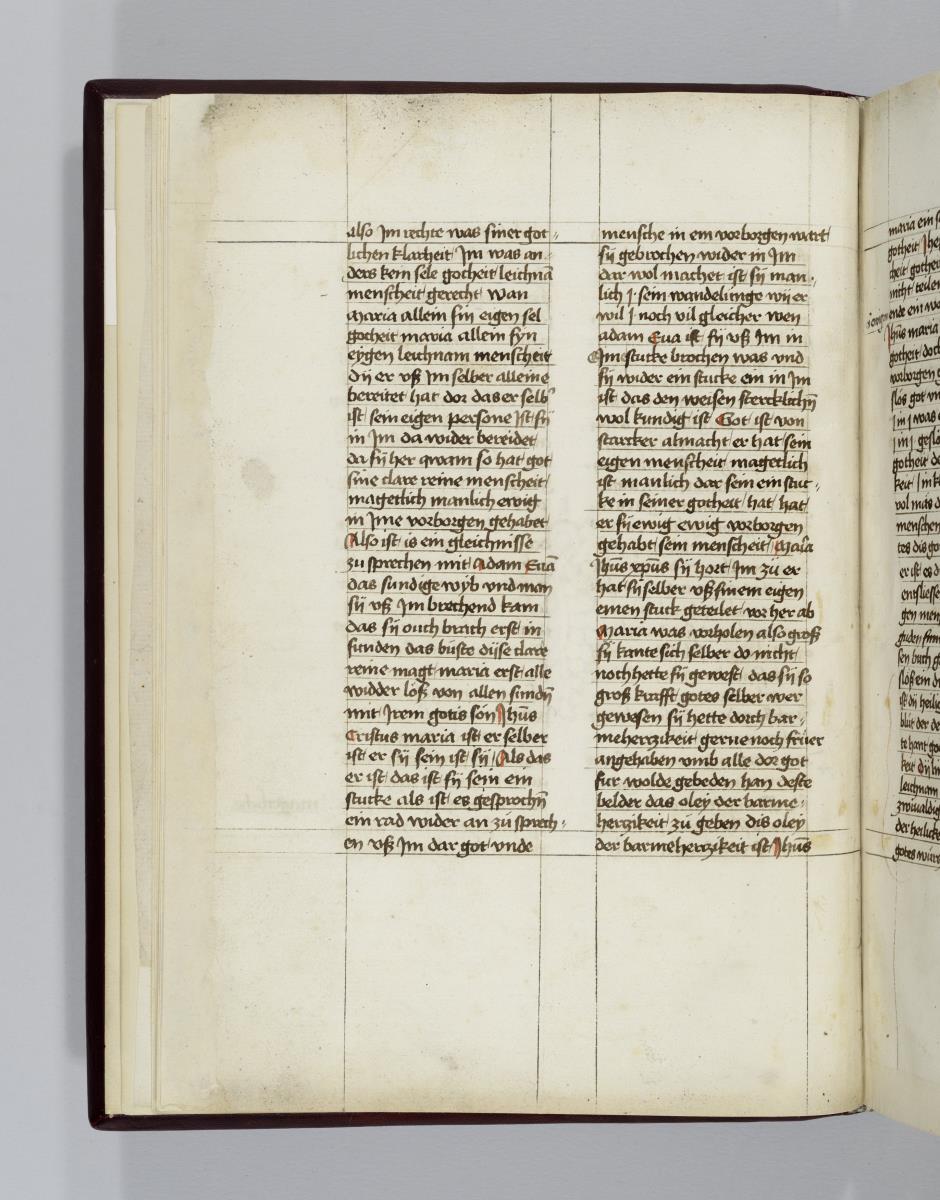 also Jm rechte was siner got⸗
lichen klarheit Jm was an
ders kein sele gotheit leichnā
menscheit gerecht wan
Maria allein sin eigen sel
gotheit maria allein syn
eygen leichnam menscheit
dÿ er vß Jm selber alleine
bereitet hat dor das er selbˀ
ist sein eigen persone Jst sÿ
in Jm da wider bereidet
da sÿ her qwam so hat got
sine clare reine menscheit
magetlich manlich ewig
in Jme vorborgen gehabet
Also ist is ein gleichnisse
zu sprechen mit Adam Eua
das sundige wyb vnd man
sÿ vß Jm brechend kam
das sÿ ouch brach erst in
sunden das buste dise clare
reine magt maria erst alle
widder löß von allen sundn̄
mit Jrem gotis son Jhūs
Cristus maria ist er selber
ist er sÿ sein ist sÿ Als das
er ist das ist sÿ sein ein
stucke als ist es gesprochn̄
ein rad wider an zu sprech⸗
en vß Jm dar got vnde
mensche in em vorborgen wart
sÿ gebrochen wider in Jm
dar wol machet ist sÿ man⸗
lich J sein wandelunge wi er
wil J noch vil gleicher wen
adam Eua ist sÿ vß Jm in
Jm stucke brochen was vnd
sÿ wider ein stucke ein in Jm
ist das den weisen stercklichn̄
wol kundig ist Got ist von
starcker almacht er hat sein
eigen menscheit magetlich
ist manlich dar sein ein stuc⸗
ke in seiner gotheit hat hat
er sÿ ewig ewig vorborgen
gehabt sein menscheit Maria
Jhūs xpūs sÿ hort Jm zu er
hat sÿ selber vß sinem eigen
einen stuck geteilet vor her ab
Maria was vorholen also groß
sÿ kante sich selber do nicht
noch hette sÿ gewest das sÿ so
groß krafft gotes selber wer
gewesen sÿ hette dorch bar⸗
meherzikeit gerne noch fruer
angehaben vmb alle dor got
fur wolde gebeden han deste
belder das oley der barme⸗
herzikeit zu geben dis oley
der barmeherzikeit ist Jhūs
maria ein
gotheit